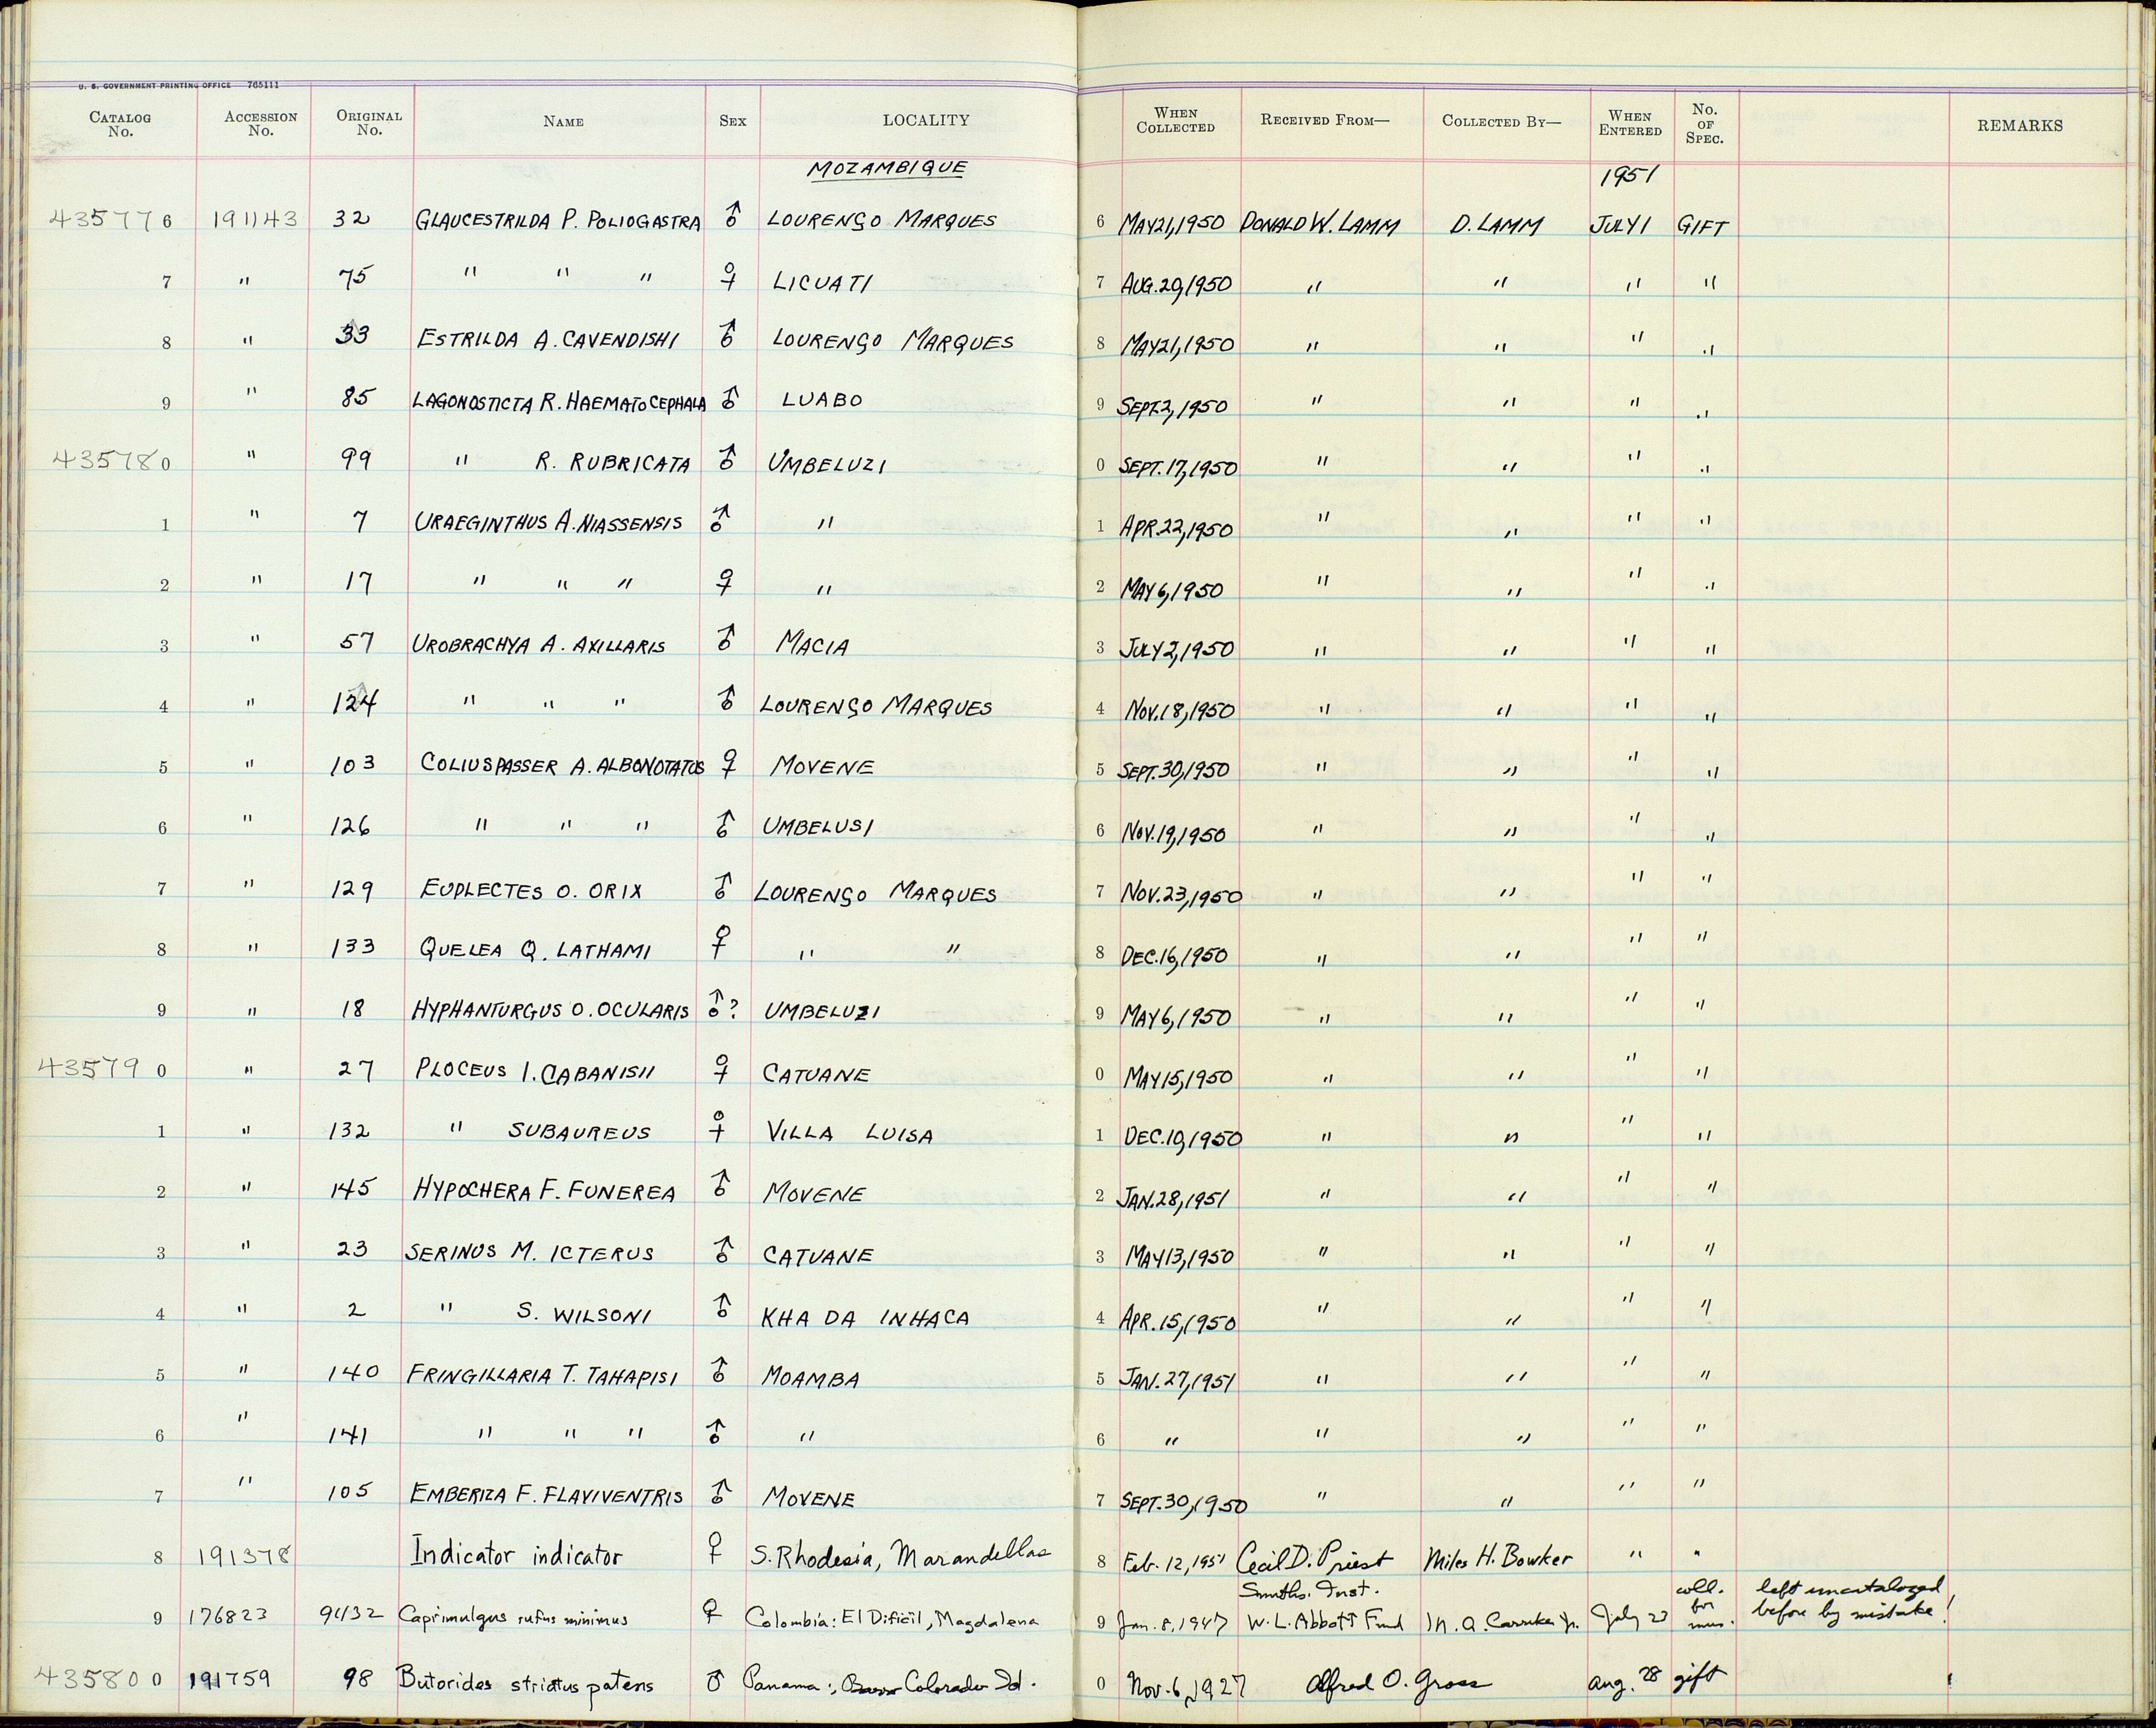 U. S. GOVERNMENT PRINTING OFFICE 765111
CATALOG No. ACCESSION No. ORIGINAL No. NAME SEX LOCALITY WHEN COLLECTED RECEIVED FROM— COLLECTED BY— WHEN ENTERED No. OF SPEC. REMARKS
MOZAMBIQUE 1951
435776 191143 32 GLAUCESTRILDA P. POLIOGASTRA ♂ LOURENÇO MARQUES 6 MAY 21, 1950 DONALD W. LAMM D. LAMM JULY 1 GIFT
7 " 75 " " " ♀ LICUATI 7 AUG. 20, 1950 " " " "
8 " 33 ESTRILDA A. CAVENDISHI ♂ LOURENÇO MARQUES 8 MAY 21, 1950 " " " "
9 " 85 LAGONOSTICTA R. HAEMATOCEPHALA ♂ LUABO 9 SEPT. 2, 1950 " " " "
435780 " 99 " R. RUBRICATA ♂ UMBELUZI 0 SEPT. 17, 1950 " " " "
1 " 7 URAEGINTHUS A. NIASSENSIS ♂ " 1 APR. 22, 1950 " " " "
2 " 17 " " " ♀ " 2 MAY 6, 1950 " " " "
3 " 57 UROBRACHYA A. AXILLARIS ♂ MACIA 3 JULY 2, 1950 " " " "
4 " 124 " " " ♂ LOURENÇO MARQUES 4 NOV. 18, 1950 " " " "
5 " 103 COLIUSPASSER A. ALBONOTATUS ♀ MOVENE 5 SEPT. 30, 1950 " " " "
6 " 126 " " " ♂ UMBELUSI 6 NOV. 19, 1950 " " " "
7 " 129 EUPLECTES O. ORIX ♂ LOURENÇO MARQUES 7 NOV. 23, 1950 " " " "
8 " 133 QUELEA Q. LATHAMI ♀ " " 8 DEC. 16, 1950 " " " "
9 " 18 HYPHANTURGUS O. OCULARIS ♂? UMBELUZI 9 MAY 6, 1950 " " " "
435790 " 27 PLOCEUS I. CABANISII ♀ CATUANE 0 MAY 15, 1950 " " " "
1 " 132 " SUBAUREUS ♀ VILLA LUISA 1 DEC. 10, 1950 " " " "
2 " 145 HYPOCHERA F. FUNEREA ♂ MOVENE 2 JAN. 28, 1951 " " " "
3 " 23 SERINUS M. ICTERUS ♂ CATUANE 3 MAY 13, 1950 " " " "
4 " 2 " S. WILSONI ♂ KHA DA INHACA 4 APR. 15, 1950 " " " "
5 " 140 FRINGILLARIA T. TAHAPISI ♂ MOAMBA 5 JAN. 27, 1951 " " " "
6 " 141 " " " ♂ " 6 " " " " "
7 " 105 EMBERIZA F. FLAVIVENTRIS ♂ MOVENE 7 SEPT. 30, 1950 " " " "
8 191378 Indicator indicator ♀ S. Rhodesia, Marandellas 8 Feb. 12, 1951 Cecil D. Priest Miles H. Bowker " "
Smiths. Inst. coll. left uncataloged
9 176823 9432 Caprimulgus rufus minimus ♀ Colombia: El Dificil, Magdalena 9 Jan. 8, 1947 W. L. Abbott Fund M. A. Carriker Jr. July 23 for mus. before by mistake!
435800 191759 98 Butorides striatus patens ♂ Panama: Barro Colorado Id. 0 Nov. 6, 1927 Alfred O. Gross Aug. 28 gift